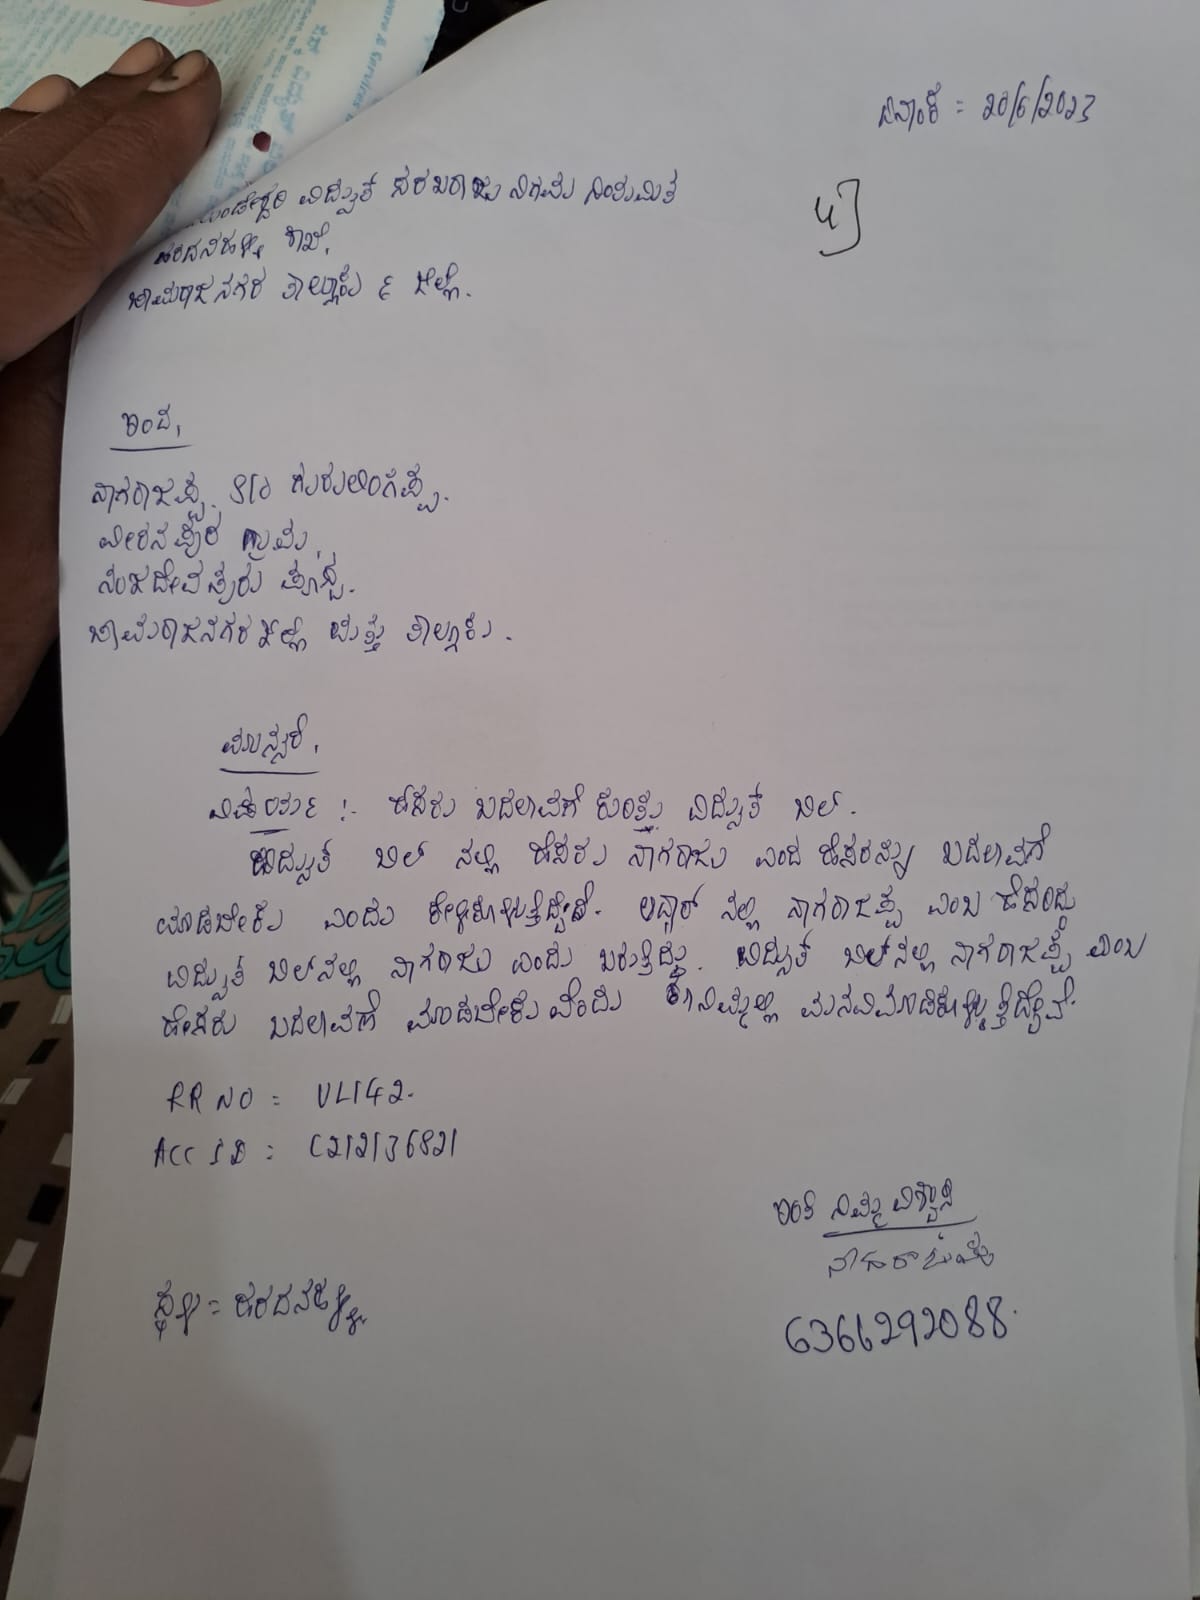 ದಿನಾಂಕ = 20/6/2023
ವಿದ್ಯುತ್ ಸರಬರಾಜು ನಿಗಮ ನಿಯಮಿತ
4]
ಹರದನಹಳ್ಳಿ ಶಾಖೆ,
ಚಾಮರಾಜನಗರ ತಾಲ್ಲೂಕು & ಜಿಲ್ಲೆ.
ಇಂದ,
ನಾಗರಾಜಪ್ಪ S/o ಗುರುಲಿಂಗಪ್ಪ.
ವೀರನಪುರ ಗ್ರಾಮ,
ನಂಜದೇವಪುರ ಪೋಸ್ಟ್.
ಚಾಮರಾಜನಗರ ಜಿಲ್ಲೆ ಮತ್ತು ತಾಲ್ಲೂಕು.
ಮಾನ್ಯರೆ,
ವಿಷಯ :- ಹೆಸರು ಬದಲಾವಣೆ ಕುರಿತು ವಿದ್ಯುತ್ ಬಿಲ್.
ವಿದ್ಯುತ್ ಬಿಲ್ ನಲ್ಲಿ ಹೆಸರು ನಾಗರಾಜು ಎಂದ ಹೆಸರನ್ನು ಬದಲಾವಣೆ
ಮಾಡಬೇಕು ಎಂದು ಕೇಳಿಕೊಳ್ಳುತ್ತಿದ್ದೇವೆ. ಆಧಾರ್ ನಲ್ಲಿ ನಾಗರಾಜಪ್ಪ ಎಂಬ ಹೆಸರಿದ್ದು
ವಿದ್ಯುತ್ ಬಿಲ್‌ನಲ್ಲಿ ನಾಗರಾಜು ಎಂದು ಬರುತ್ತಿದ್ದು. ವಿದ್ಯುತ್ ಬಿಲ್‌ನಲ್ಲಿ ನಾಗರಾಜಪ್ಪ ಎಂಬ
ಹೇಸರು ಬದಲಾವಣೆ ಮಾಡಬೇಕು ವೆಂದು ನಿಮ್ಮಲ್ಲಿ ಮನವಿಮಾಡಿಕೊಳ್ಳುತ್ತಿದ್ದೇವೆ.
RR NO = VL142.
ACC ID = C212136821
ಇಂತಿ ನಿಮ್ಮ ವಿಶ್ವಾಸಿ
ನಾಗರಾಜಪ್ಪ
ಸ್ಥಳ = ಹರದನಹಳ್ಳಿ
6366292088.